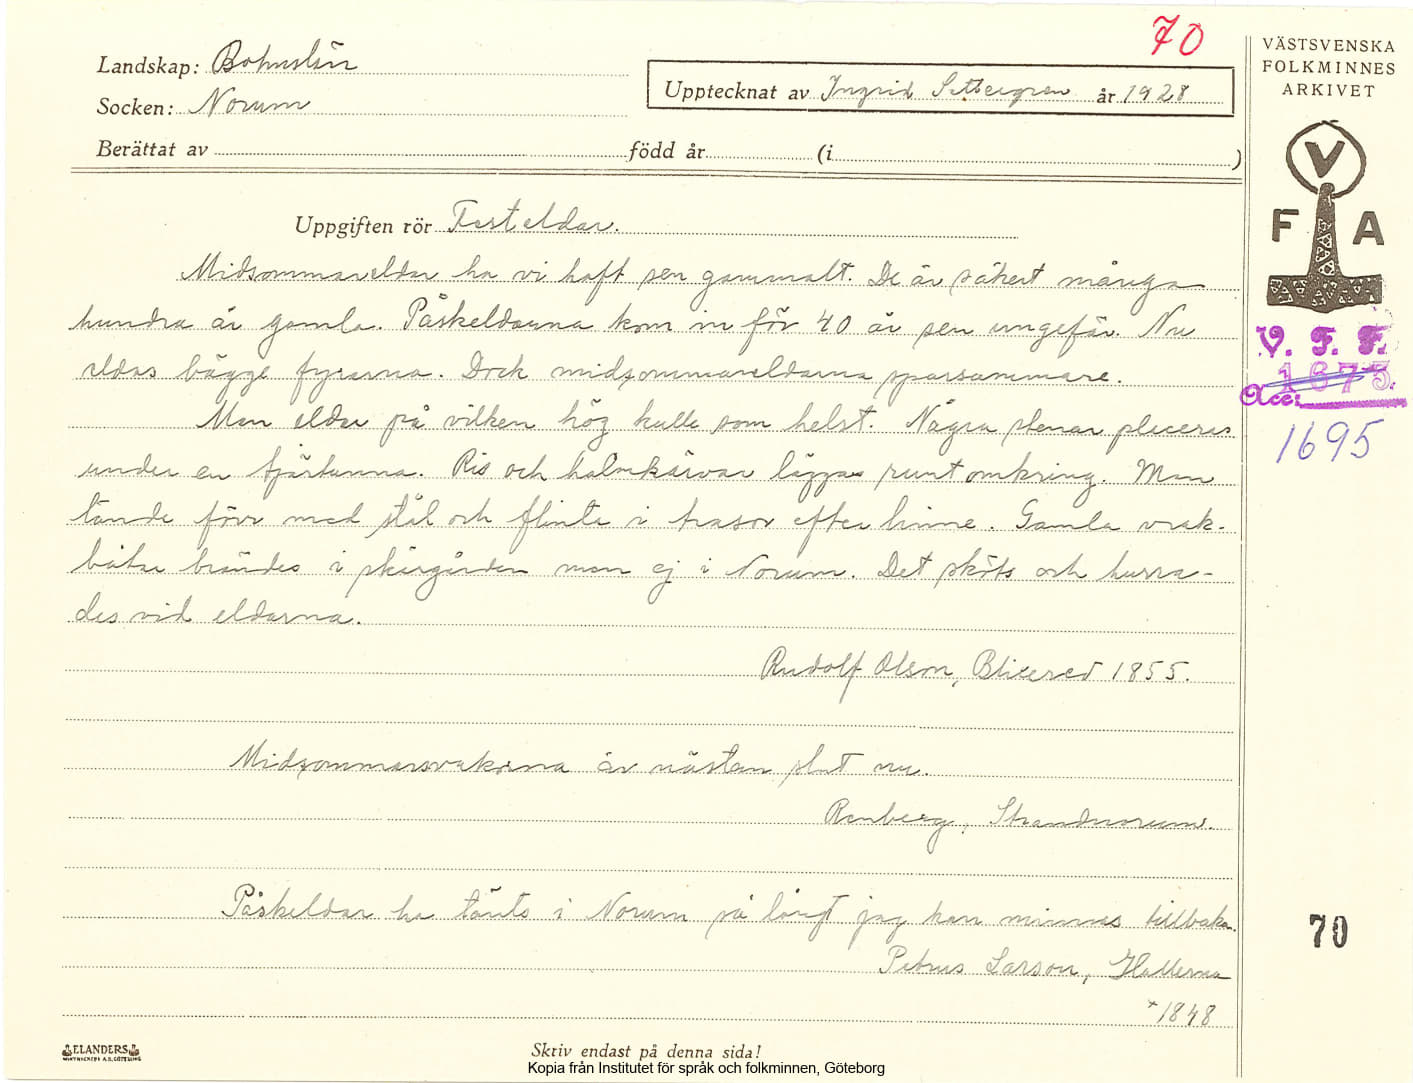 70
VÄSTSVENSKA
FOLKMINNES
ARKIVET
Landskap: Bohuslän
Upptecknat av Ingrid Settergren år 1928
Socken: Norum
Berättat av född år (i )
V
F A
Uppgiften rör Festeldar.
Midsommareldar ha vi haft sen gammalt. De är säkert många
hundra år gamla. Påskeldarna kom in för 40 år sen ungefär. Nu
eldas bägge fyrarna. Dock midsommareldarna sparsammare.
V. F. F.
1673.
Acc:
1695
Man eldar på vilken hög kulle som helst. Några stenar placeras
under en tjärtunna. Ris och halmkärvar läggas runt omkring. Man
tände förr med stål och flinta i trasor efter linne. Gamla vrak-
båtar brändes i skärgården men ej i Norum. Det sköts och hurra-
des vid eldarna.
Rudolf Olson, Blixered 1855.
Midsommarsvakorna är nästan slut nu.
Renberg, Strandnorum.
Påskeldar ha tänts i Norum så långt jag kan minnas tillbaka.
Petrus Larson, Hallerna
*1848
70
ELANDERS
Skriv endast på denna sida!
Kopia från Institutet för språk och folkminnen, Göteborg